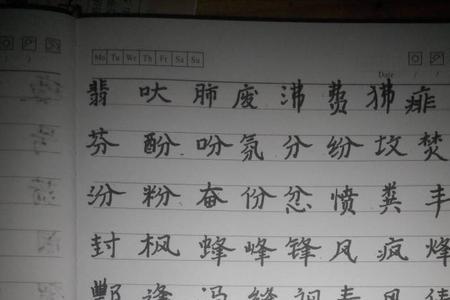 Mo Tu We Th Fr Sa Su
Date / /
翡 吠 肺 废 沸 费 狒 痱
芬 酚 吩 氛 分 纷 坟 焚
汾 粉 奋 份 忿 愤 粪 丰
封 枫 蜂 峰 锋 风 疯 烽
酆 逢 冯 缝 讽 奉 凤